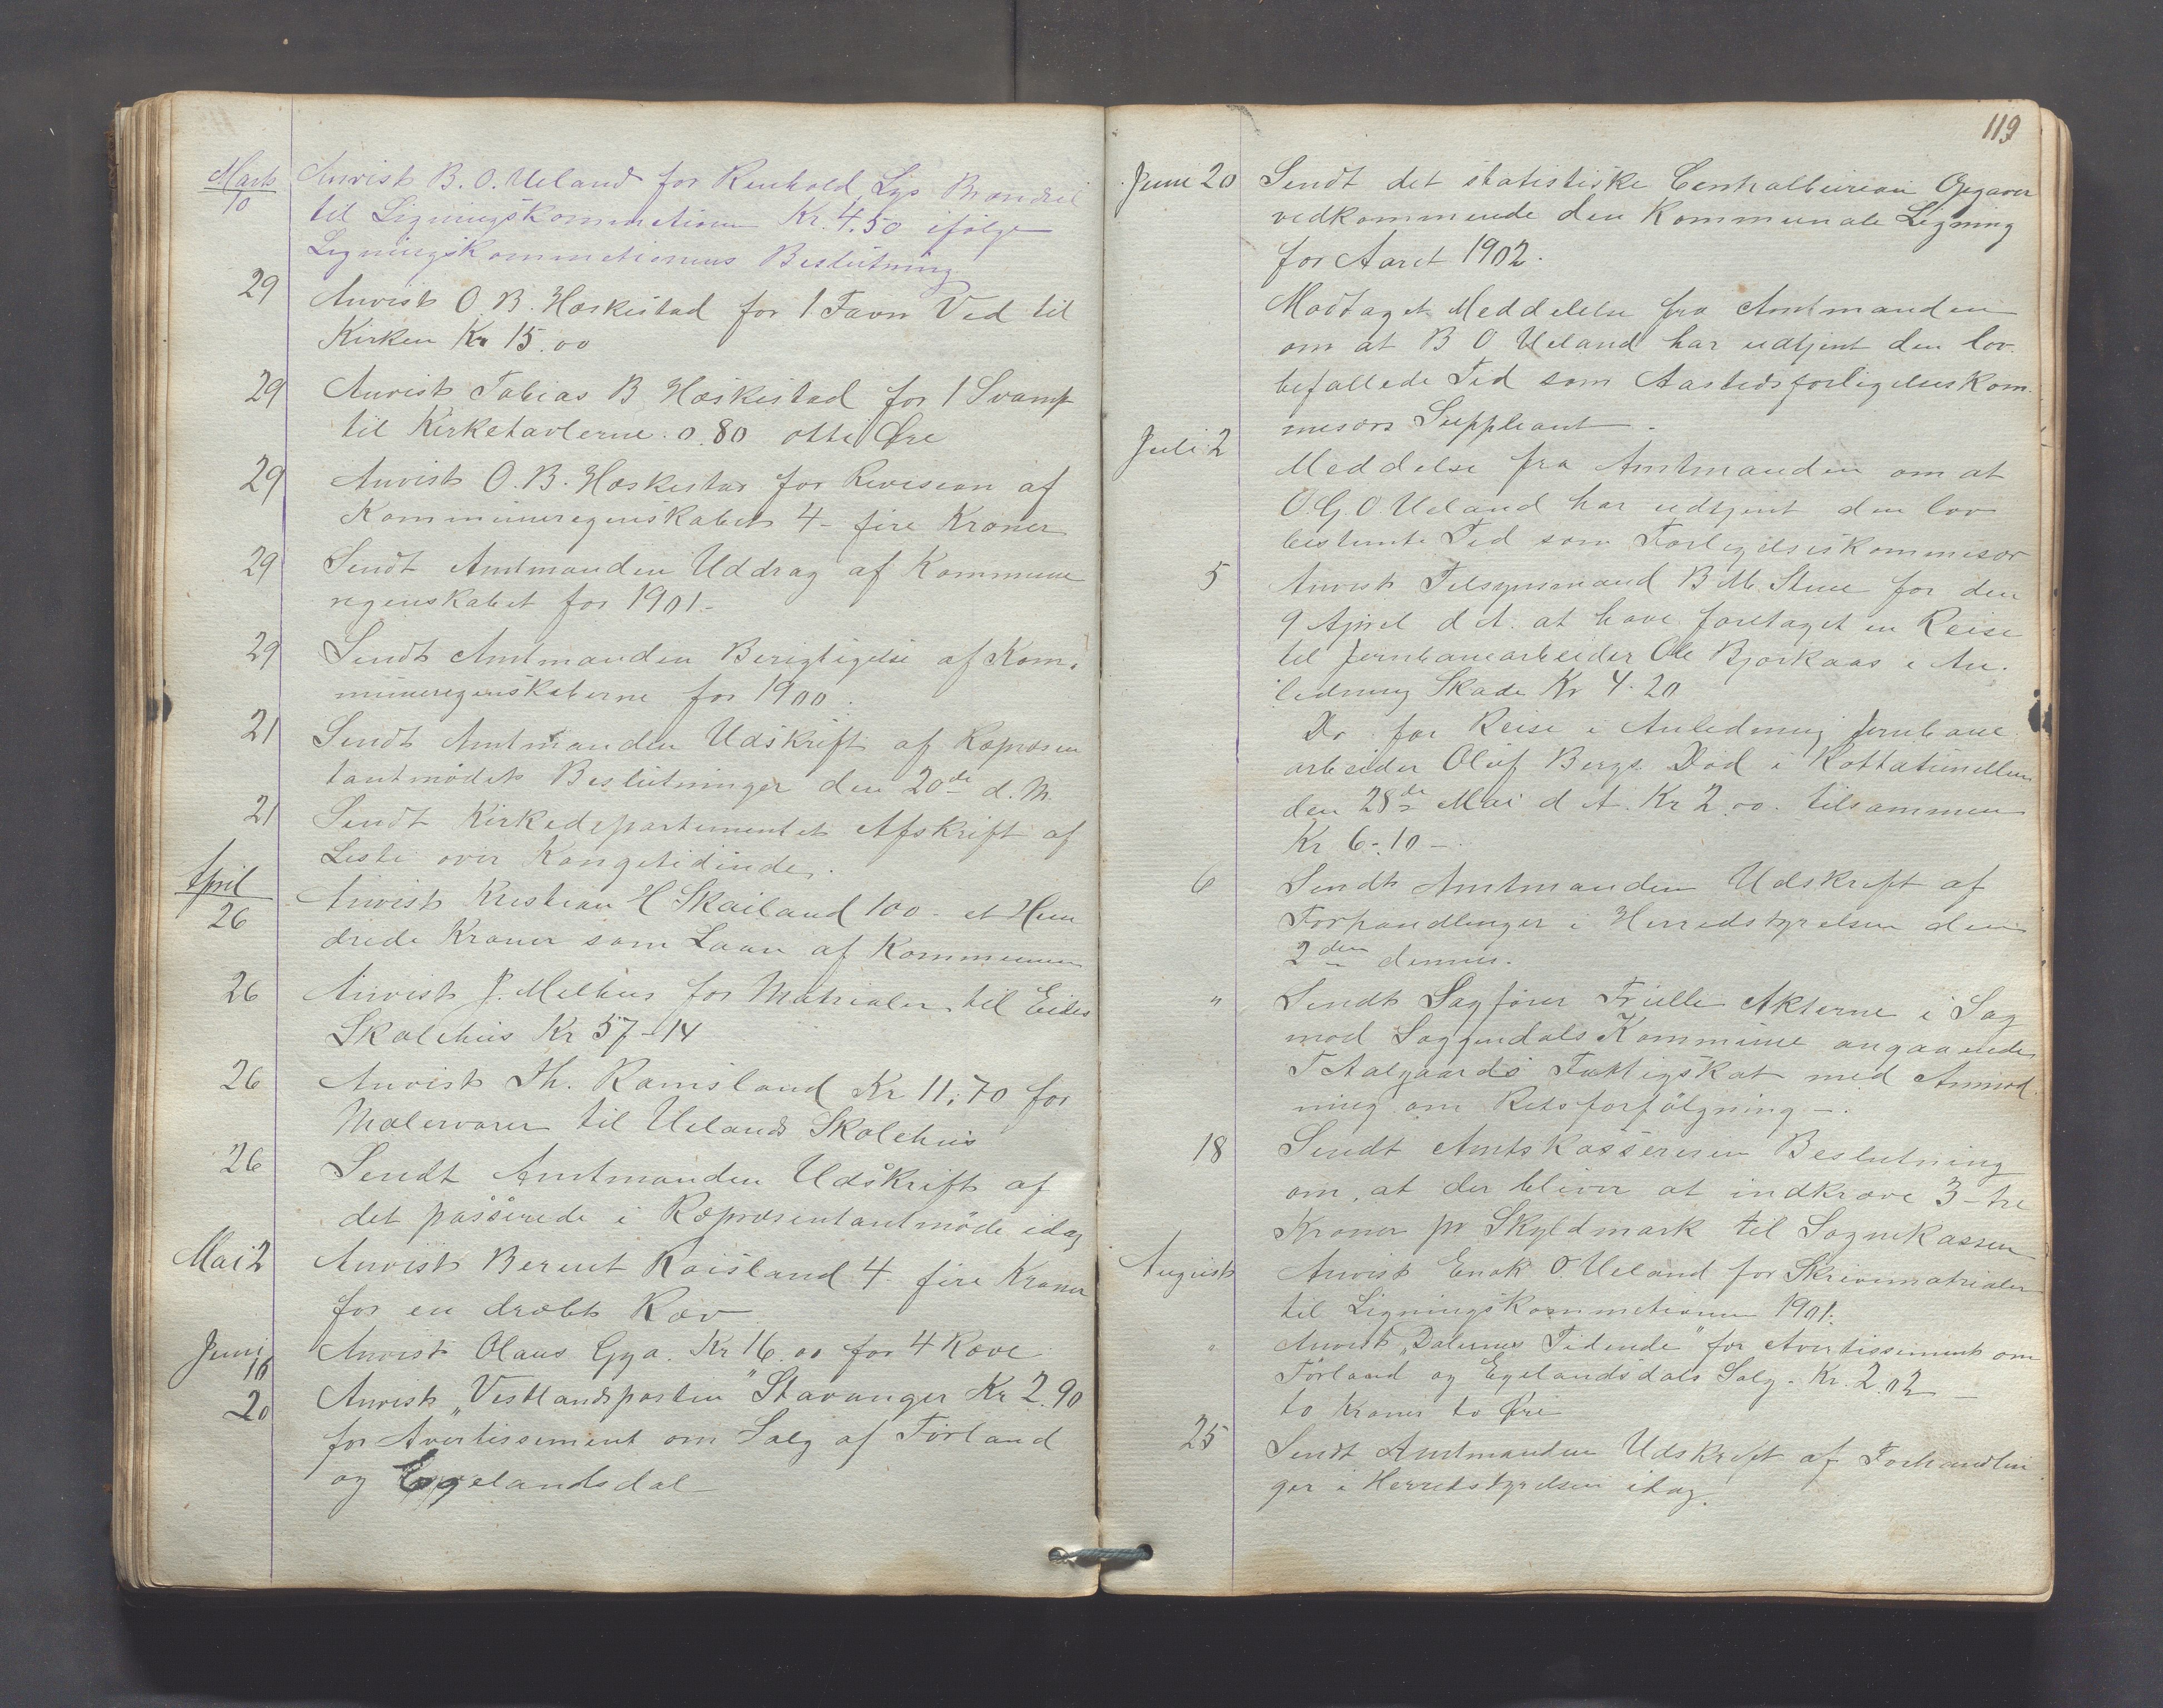 Marts 10 Anvist B. O. Ueland for Renhold Lys Brændsel
til Ligningskommetionen Kr. 4.50 ifølge
Ligningskommetionens Beslutning
29 Anvist O B. Hæskestad for 1 Favn Ved til
Kirken Kr 15.00
29 Anvist Tobias B Hæskestad for 1 Svamp
til Kirketavlerne 0.80 otti Øre
29 Anvist O. B. Hæskestad for Revision af
Kommuneregenskabet 4 - fire Kroner
29 Sendt Amtmanden Uddrag af Kommune
regenskabet for 1901 -
29 Sendt Amtmanden Berigtigelse af Kom.
muneregenskaberne for 1900.
21 Sendt Amtmanden Udskrift af Repræsen
tantmødets Beslutninger den 20de d. M.
21 Sendt Kirkedepartementet Afskrift af
Liste over Kongetidinde.
April 26 Anvist Kristian H Skailand 100 - et Hun
drede Kroner som Laan af Kommunen
26 Anvist J. Melhus for Matrialer til Eides
Skolehus Kr 57-14
26 Anvist Th. Ramsland Kr 11.70 for
Malervarer til Uelands Skolehus
26 Sendt Amtmanden Udskrift af
det passerede i Repræsentantmøde idag
Mai 2 Anvist Berent Roisland 4 - fire Kroner
for en dræbt Ræv
Juni 16 Anvist Olaus Gya. Kr 16.00 for 4 Ræve
20 Anvist „Vestlandsposten" Stavanger Kr 2.90
for Avertissement om Salg af Förland
og Egelandsdal
119
Juni 20 Sendt det statistiske Centralbureau Opgaver
vedkommende den Kommunale Ligning
for Aaret 1902.
Modtaget Meddelelse fra Amtmanden
om at B O Ueland har udtjent den lov-
befallede Tid som Aastedsforligelseskom-
mesørs Suppleant -
Juli 2 Meddelse fra Amtmanden om at
O. G. O Ueland har udtjent den lov
bestemte Tid som Forligelseskommesør
5 Anvist Tilsynsmand B M. Stene for den
9 April d A. at have foretaget en Reise
til Jernbanearbeider Ole Bjørkaas i An-
ledning Skade Kr 4.20
Do for Reise i Anledning Jernbane
arbeider Oluf Bergs Død i
den 28de Mai d A. Kr 2.00. tilsammen
Kr 6-10 -
6 Sendt Amtmanden Udskrift af
Forhandlinger i Herredstyrelsen den
2den dennes.
" Sendt Sagfører Trielle Akterne i Sag
mod Soggendals Kommune angaaende
T Aalgaards Fattigskat med Anmod
ning om Retsforfølgning -.
18 Sendt Amtskassereren Beslutning
om, at der bliver at indkræve 3 - tre
Kroner pr Skyldmark til Sognekassen
August Anvist Enok O Ueland for Skrivematrialer
til Ligningskommetionen 1901.
" Anvist „Dalernes Tidende" for Avertissement om
Förland og Egelandsdals Salg. Kr. 2.02 -
to Kroner to Øre
25 Sendt Amtmanden Udskrift af Forhandlin
ger i Herredstyrelsen idag.